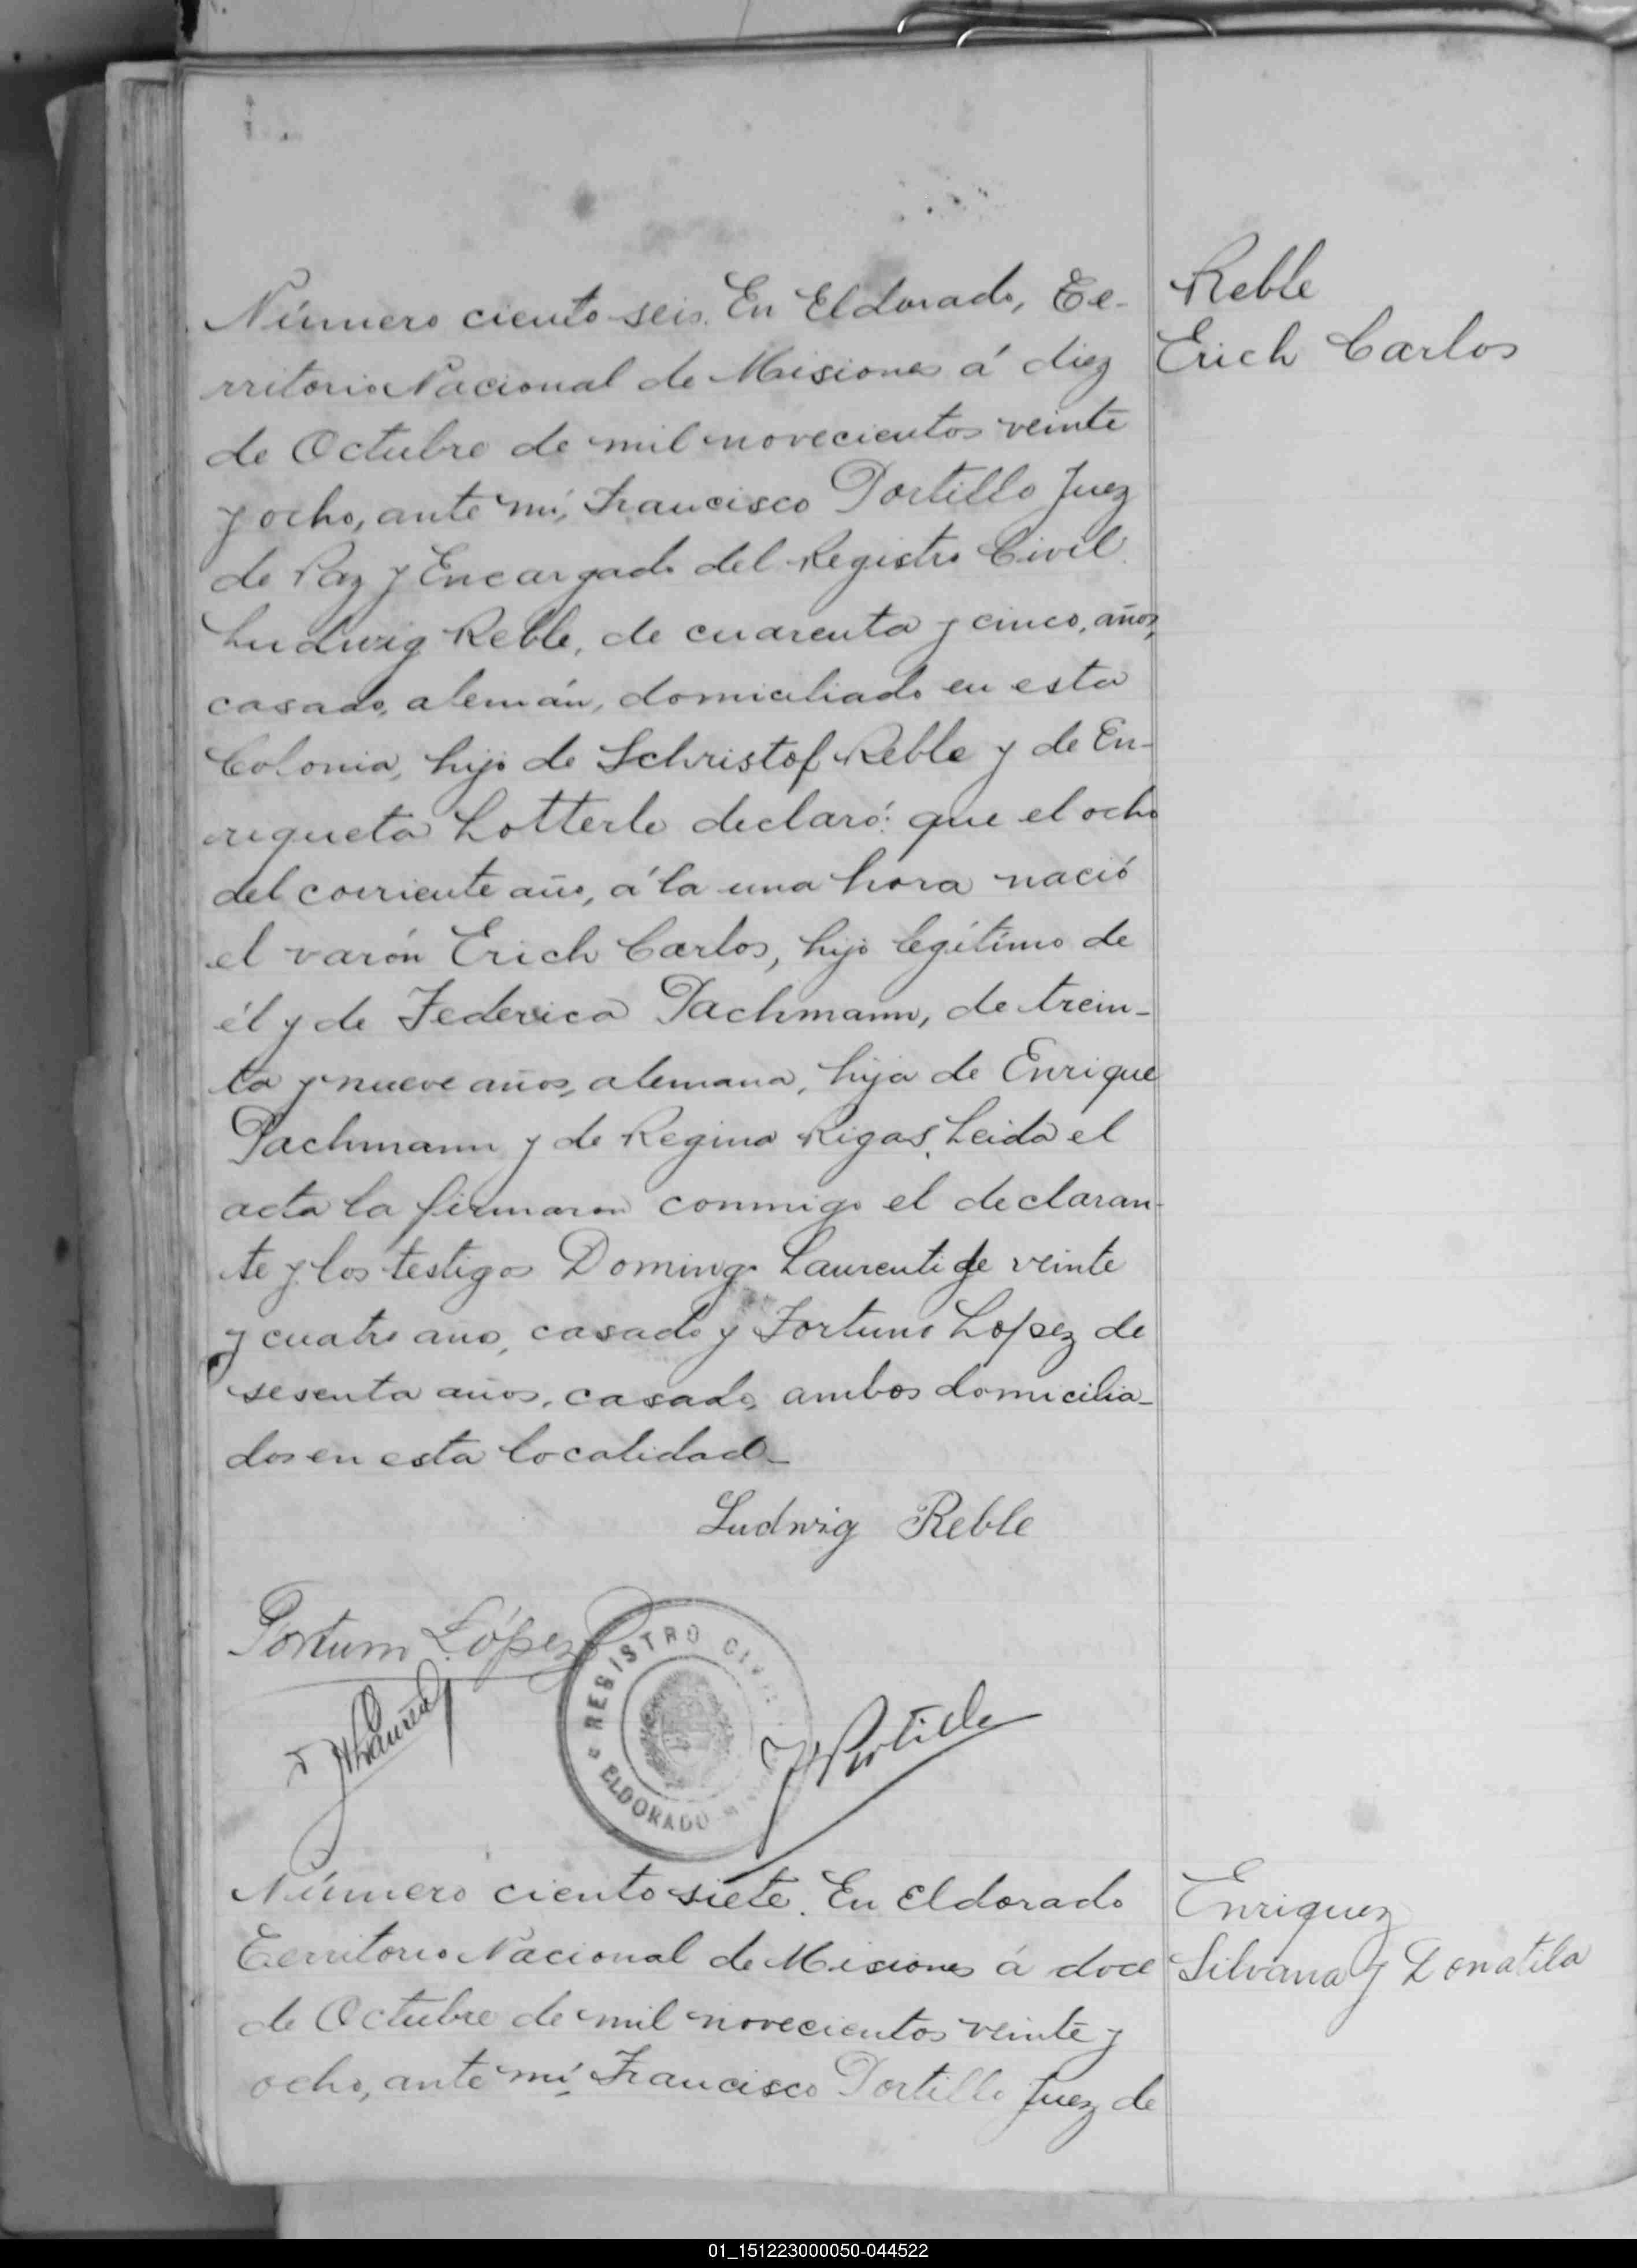 Número ciento seis. En Eldorado, Te-
rritorio Nacional de Misiones á diez
de Octubre de mil novecientos veinte
y ocho, ante mí, Francisco Portillo Juez
de Paz y Encargado del Registro Civil.
Ludwig Reble, de cuarenta y cinco, años,
casado, alemán, domiciliado en esta
Colonia, hijo de Schristof Reble y de En-
riqueta Lotterle declaró: que el ocho
del corriente año, á la una hora nació
el varón Erich Carlos, hijo legítimo de
él y de Federica Pachmann, de trein-
ta y nueve años, alemana, hija de Enrique
Pachmann y de Regina Rigas. Leida el
acta la firmaron conmigo el declaran-
te y los testigos Domingo Laurenti de veinte
y cuatro año, casado y Fortuno Lopez de
sesenta años, casado, ambos domicilia-
dos en esta localidad-
Reble
Erich Carlos
Ludwig Reble
Fortum López
REGISTRO CIVIL
ELDORADO
F Portillo
Número ciento siete. En Eldorado
Territorio Nacional de Misiones á doce
de Octubre de mil novecientos veinte y
ocho, ante mí, Francisco Portillo Juez de
Enriquez
Silvana y Donatila
01_151223000050-044522